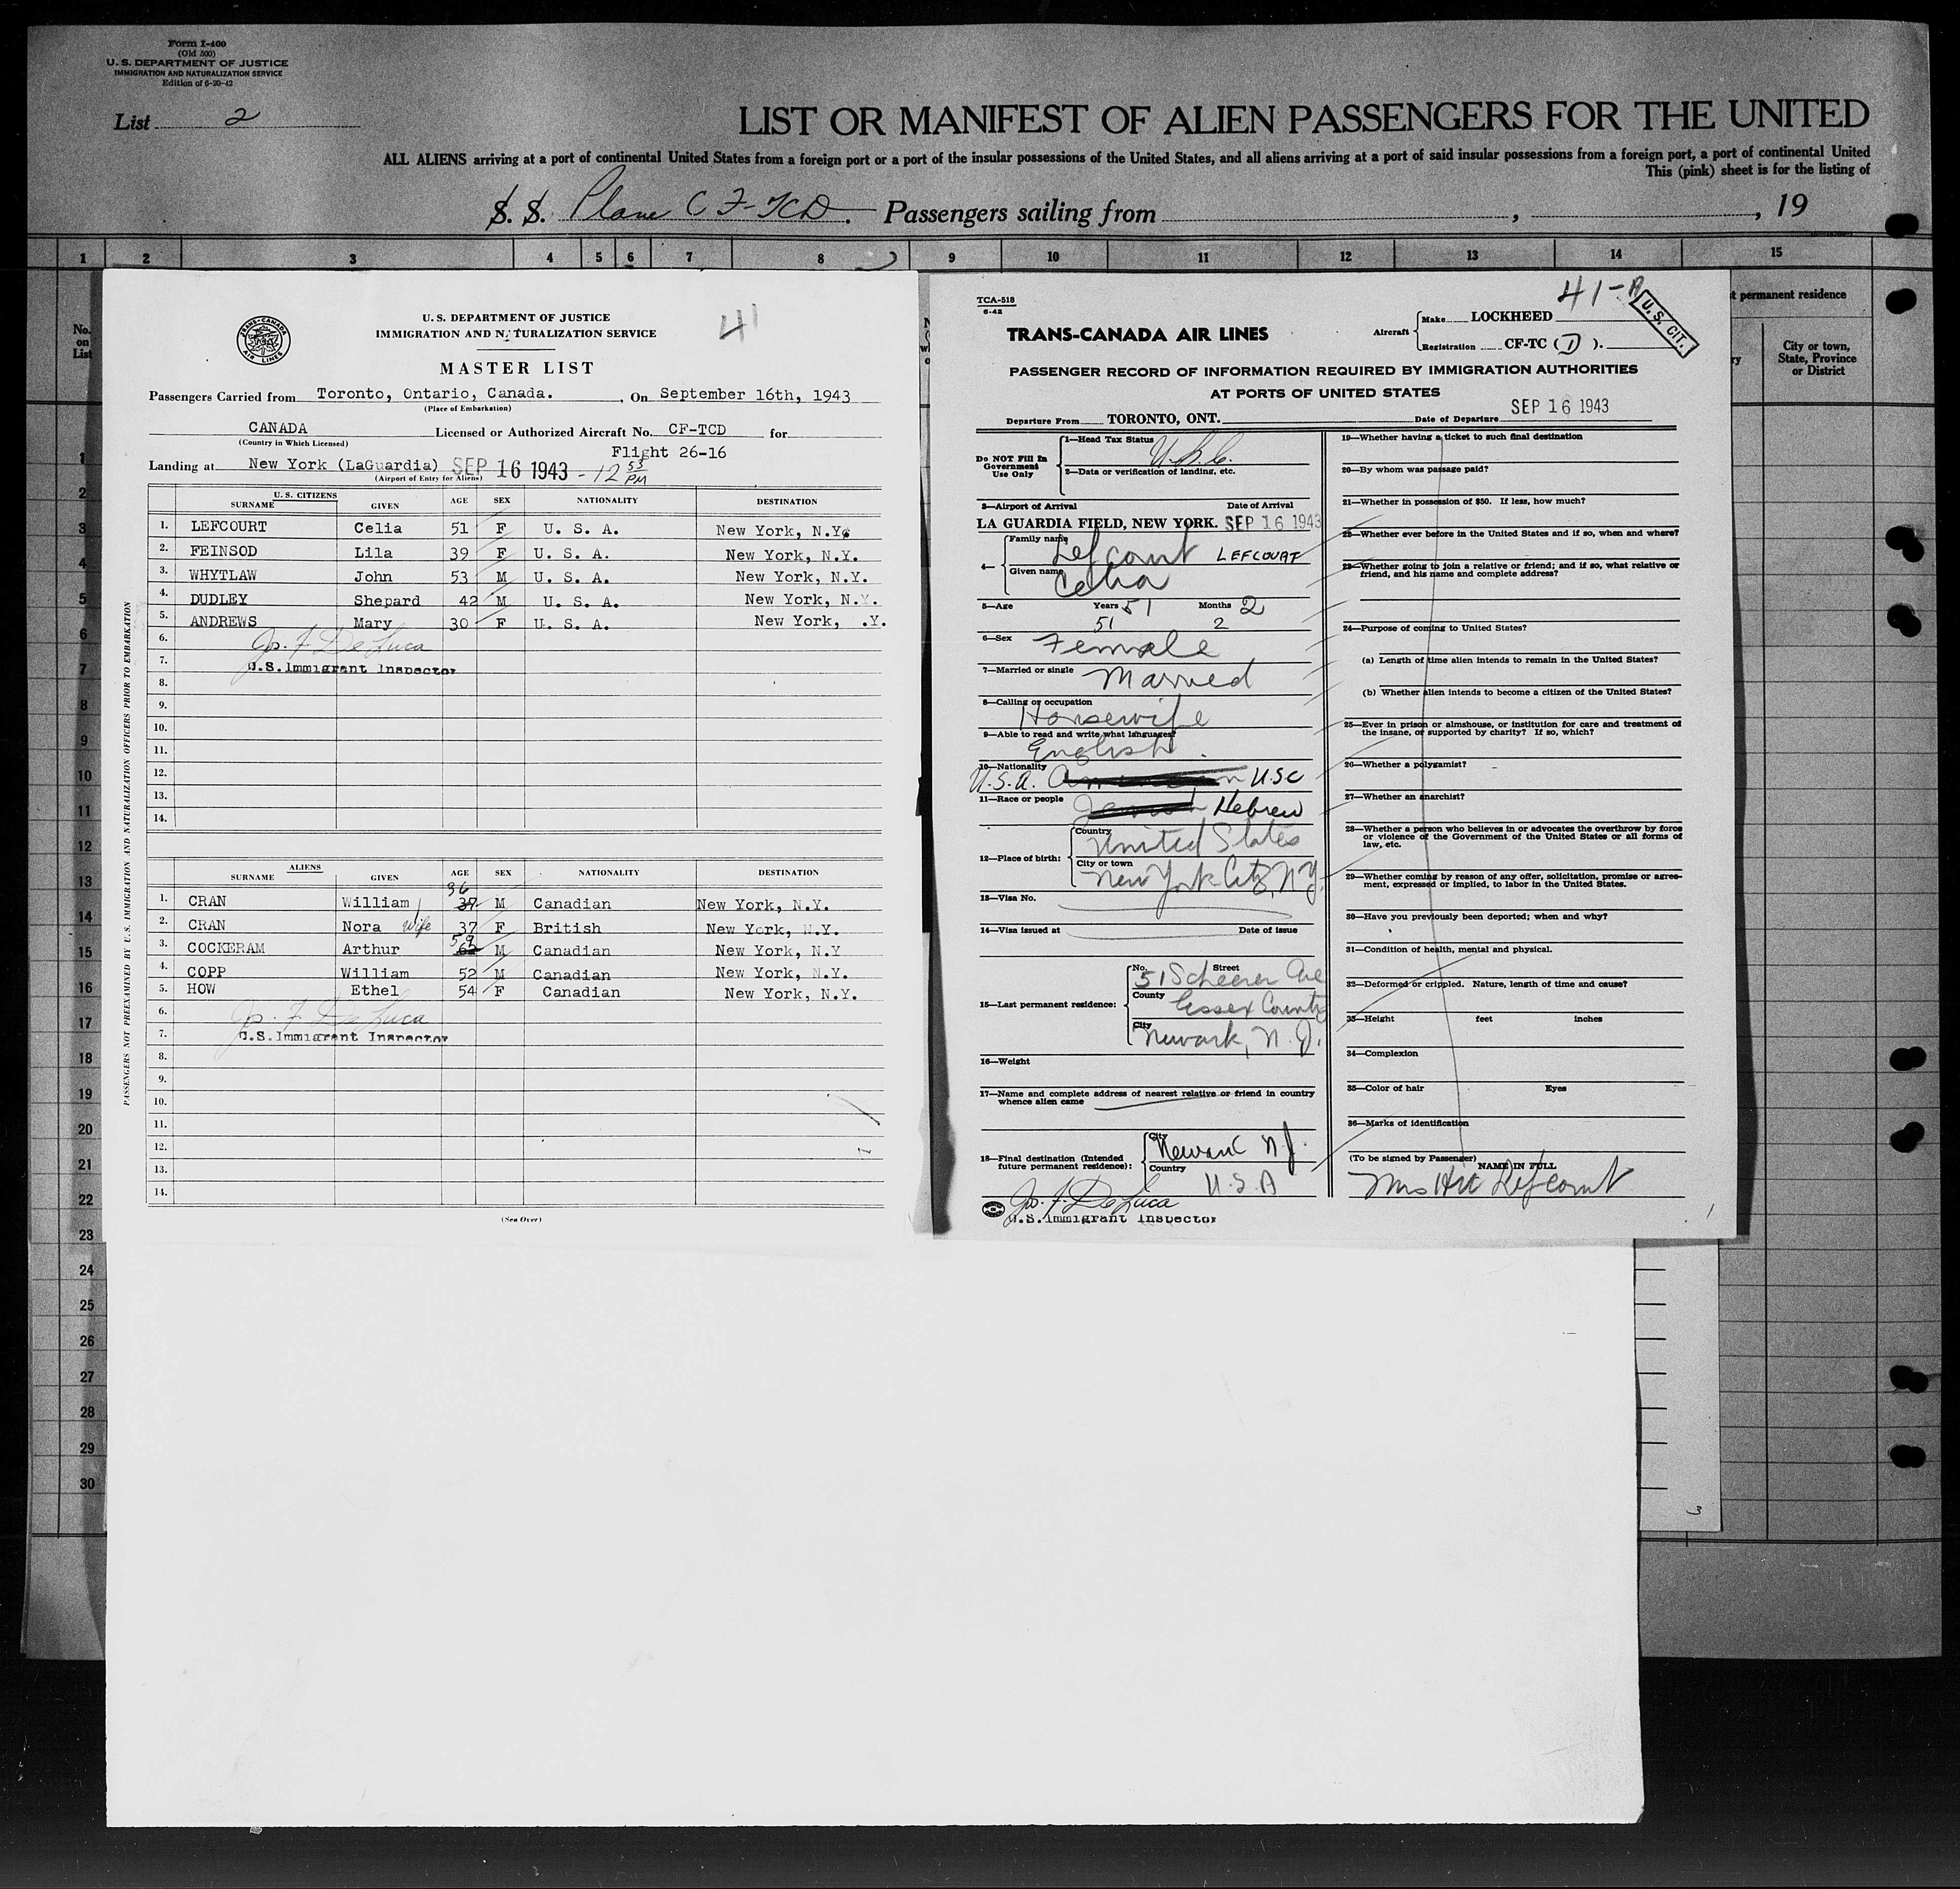 Form I-400
(Old 500)
U. S. DEPARTMENT OF JUSTICE
IMMIGRATION AND NATURALIZATION SERVICE
Edition of 6-20-42
List 2
LIST OR MANIFEST OF ALIEN PASSENGERS FOR THE UNITED
ALL ALIENS arriving at a port of continental United States from a foreign port or a port of the insular possessions of the United States, and all aliens arriving at a port of said insular possessions from a foreign port, a port of continental United
This (pink) sheet is for the listing of
S. S. Plane CF-TCD. Passengers sailing from , , 19
1 2 3 4 5 6 7 8 9 10 11 12 13 14 15
No. on List
t permanent residence
City or town, State, Province or District
1
2
3
4
5
6
7
8
9
10
11
12
13
14
15
16
17
18
19
20
21
22
23
24
25
26
27
28
29
30
TRANS-CANADA AIR LINES
U. S. DEPARTMENT OF JUSTICE
IMMIGRATION AND NATURALIZATION SERVICE
41
MASTER LIST
Passengers Carried from Toronto, Ontario, Canada. , On September 16th, 1943
(Place of Embarkation)
CANADA Licensed or Authorized Aircraft No. CF-TCD for
(Country in Which Licensed)
Flight 26-16
Landing at New York (LaGuardia) SEP 16 1943 - 12 53 PM
(Airport of Entry for Aliens)
U. S. CITIZENS
SURNAME GIVEN AGE SEX NATIONALITY DESTINATION
1. LEFCOURT Celia 51 F U. S. A. New York, N.Y.
2. FEINSOD Lila 39 F U. S. A. New York, N.Y.
3. WHYTLAW John 53 M U. S. A. New York, N.Y.
4. DUDLEY Shepard 42 M U. S. A. New York, N.Y.
5. ANDREWS Mary 30 F U. S. A. New York, .Y.
6. Jos. F. De Luca
7. U.S.Immigrant Inspector
8.
9.
10.
11.
12.
13.
14.
ALIENS
SURNAME GIVEN AGE SEX NATIONALITY DESTINATION
36
1. CRAN William 37 M Canadian New York, N.Y.
2. CRAN Nora wife 37 F British New York, N.Y.
59
3. COCKERAM Arthur M Canadian New York, N.Y
4. COPP William 52 M Canadian New York, N.Y.
5. HOW Ethel 54 F Canadian New York, N.Y.
6. Jos. F. De Luca
7. U.S.Immigrant Inspector
8.
9.
10.
11.
12.
13.
14.
(See Over)
PASSENGERS NOT PREEXAMINED BY U.S. IMMIGRATION AND NATURALIZATION OFFICERS PRIOR TO EMBARKATION
TCA-518
6-42
41-A
U. S. CIT.
TRANS-CANADA AIR LINES
Aircraft
Make LOCKHEED
Registration CF-TC ( D ).
PASSENGER RECORD OF INFORMATION REQUIRED BY IMMIGRATION AUTHORITIES
AT PORTS OF UNITED STATES
Departure From TORONTO, ONT. Date of Departure SEP 16 1943
Do NOT Fill In Government Use Only
1—Head Tax Status
U.S.C.
2—Data or verification of landing, etc.
3—Airport of Arrival Date of Arrival
LA GUARDIA FIELD, NEW YORK. SEP 16 1943
4— Family name Lefcourt LEFCOURT
Given name Celia
5—Age Years 51 Months 2
51 2
6—Sex Female
7—Married or single Married
8—Calling or occupation
Housewife
9—Able to read and write what languages?
English
10—Nationality
U.S.A. American USC
11—Race or people Jewish Hebrew
12—Place of birth: Country
United States
City or town
New York City, N.Y.
13—Visa No.
14—Visa issued at Date of issue
15—Last permanent residence: No. Street
51 Scheerer Ave
County Essex County
City Newark, N.J.
16—Weight
17—Name and complete address of nearest relative or friend in country
whence alien came
18—Final destination (Intended
future permanent residence): City Newark NJ.
Country U.S.A
Jos. F. De Luca
U.S. Immigrant Inspector
19—Whether having a ticket to such final destination
20—By whom was passage paid?
21—Whether in possession of $50. If less, how much?
22—Whether ever before in the United States and if so, when and where?
23—Whether going to join a relative or friend; and if so, what relative or
friend, and his name and complete address?
24—Purpose of coming to United States?
(a) Length of time alien intends to remain in the United States?
(b) Whether alien intends to become a citizen of the United States?
25—Ever in prison or almshouse, or institution for care and treatment of
the insane, or supported by charity? If so, which?
26—Whether a polygamist?
27—Whether an anarchist?
28—Whether a person who believes in or advocates the overthrow by force
or violence of the Government of the United States or all forms of
law, etc.
29—Whether coming by reason of any offer, solicitation, promise or agree-
ment, expressed or implied, to labor in the United States.
30—Have you previously been deported; when and why?
31—Condition of health, mental and physical.
32—Deformed or crippled. Nature, length of time and cause?
33—Height feet inches
34—Complexion
35—Color of hair Eyes
36—Marks of identification
(To be signed by Passenger) NAME IN FULL
Mrs Lefcourt